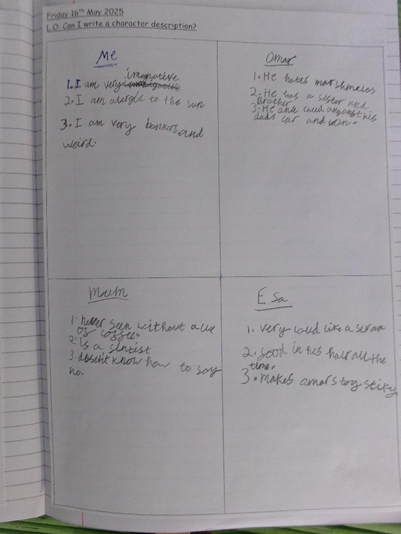 Friday 16th May 2025
L.O: Can I write a character description?
Me
imagnative
1. I am very
2. I am alergic to the sun
3. I am very bonkers and
weird.
Omar
1. He hates marshmelos
2. He has a sister and
Brother
3. He once raced against his
dads car and won.
Mum
1. never seen without a cup
of coffee
2. is a sintist
3. dosent know how to say
no.
ESa
1. very loud like a scram
2. food in his hair all the
time.
3. makes amars toy sticky